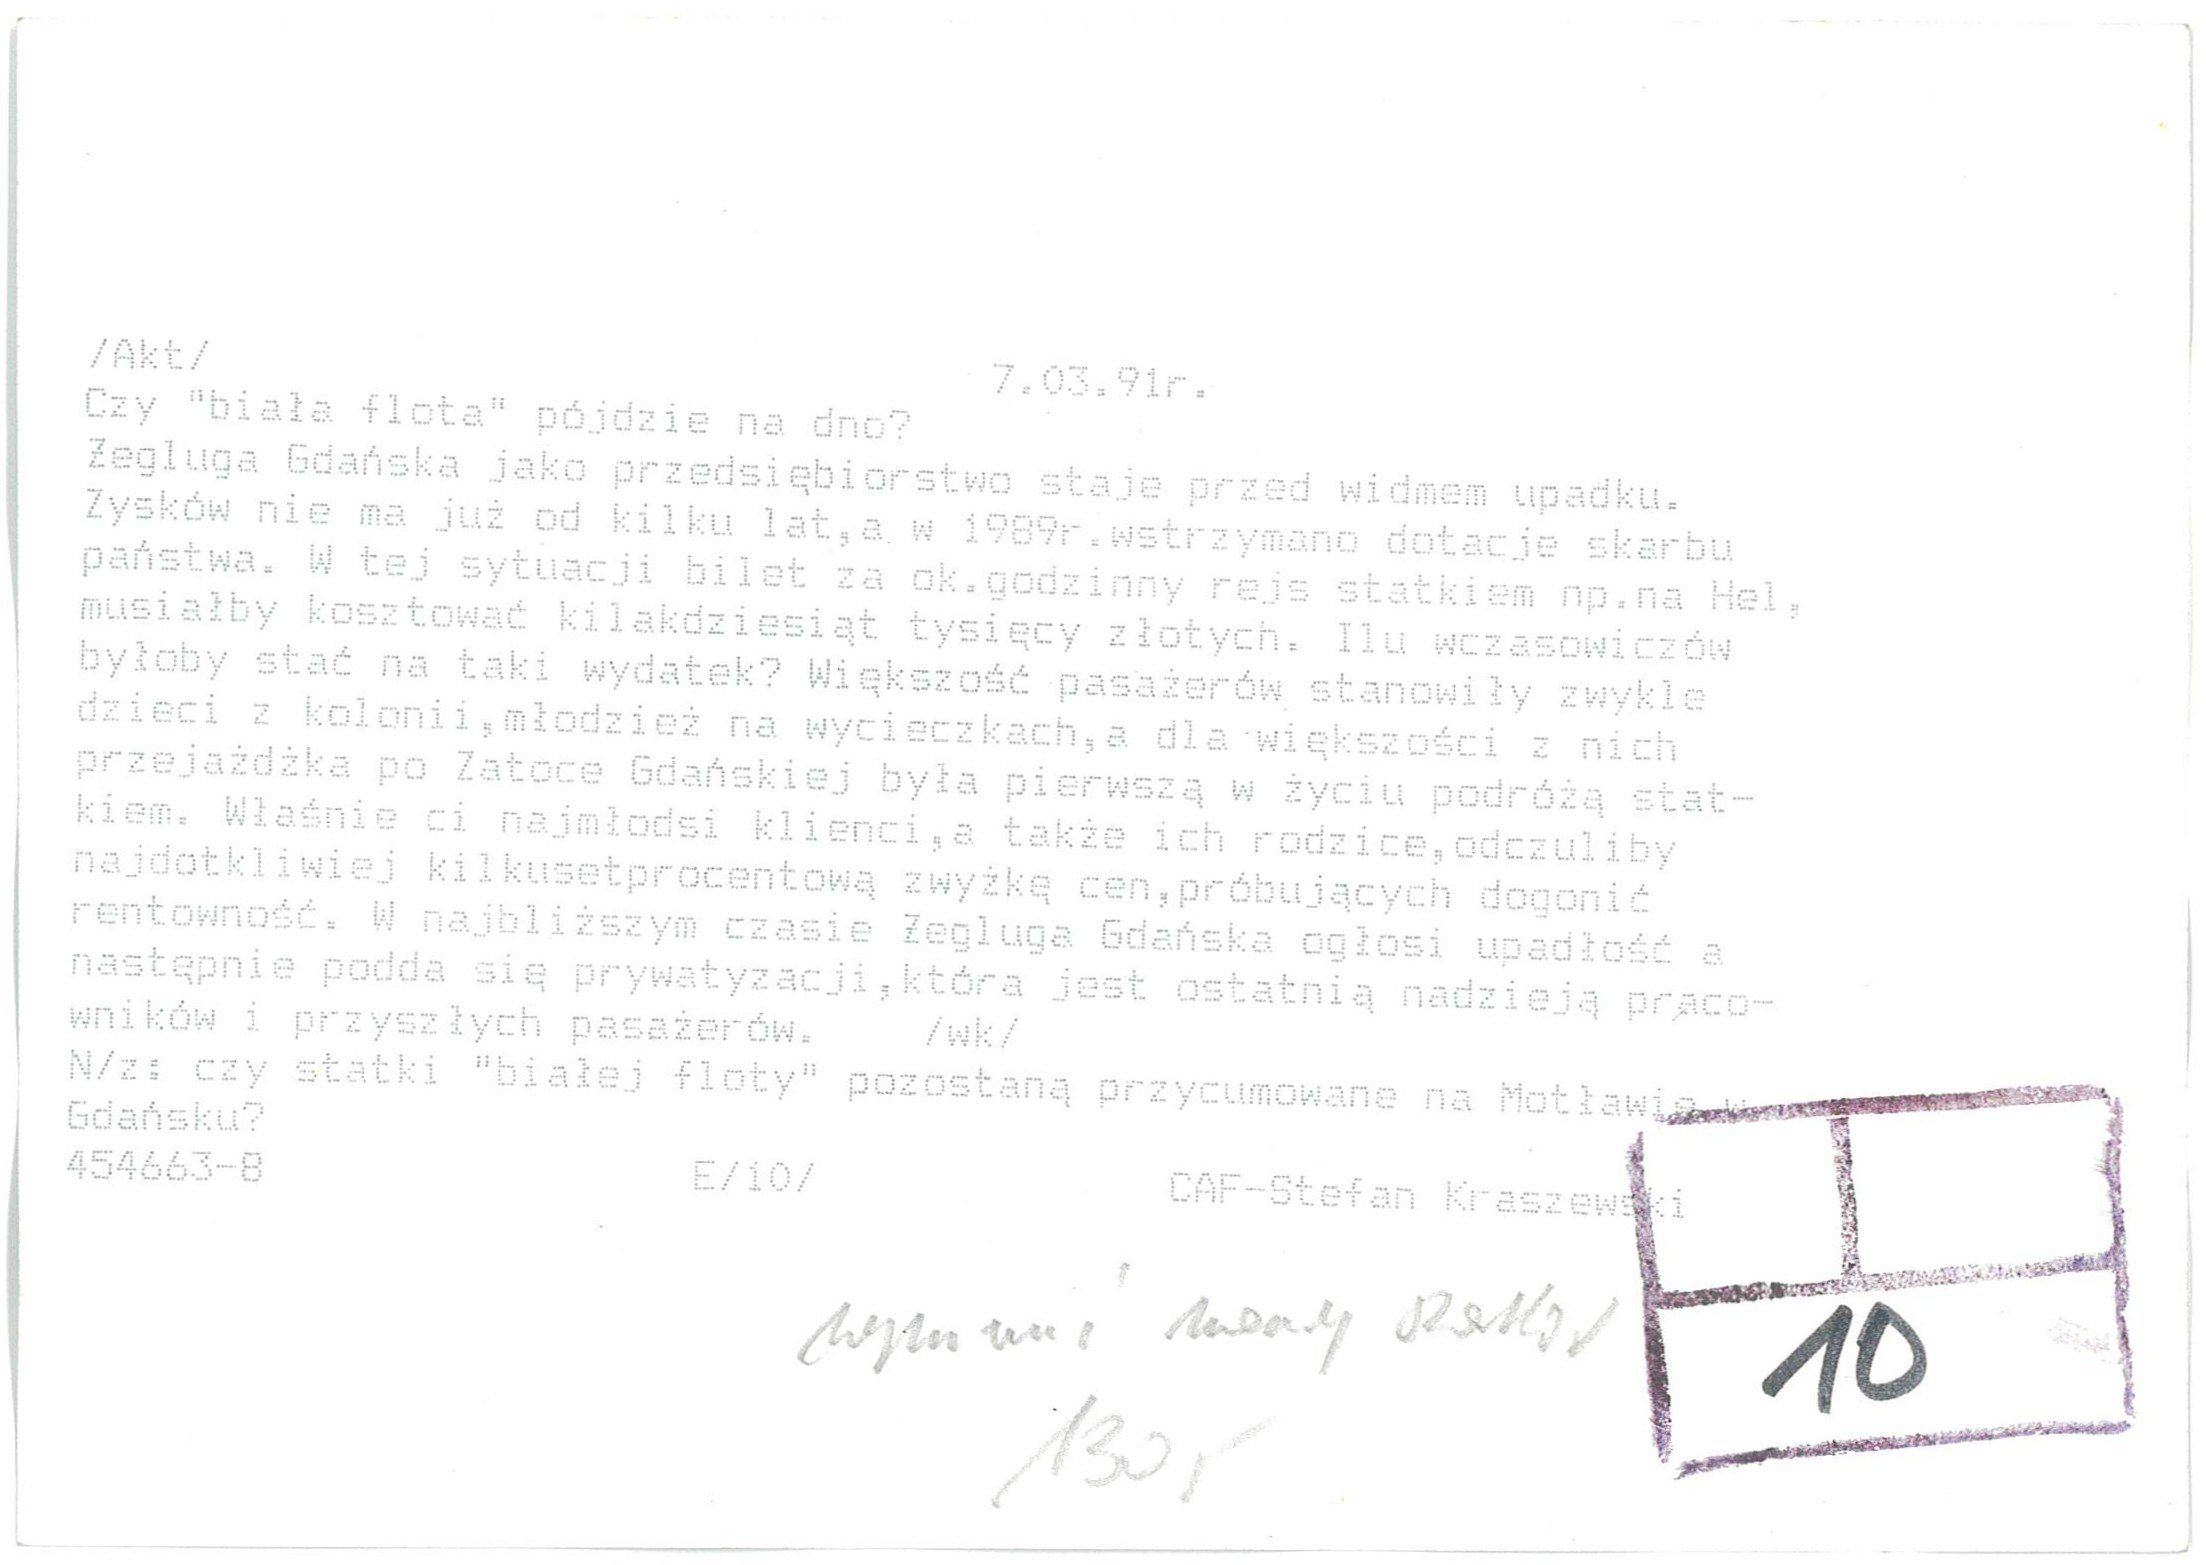 /Akt/
7.03.91r.
Czy "biała flota" pójdzie na dno?
Żegluga Gdańska jako przedsiębiorstwo staje przed widmem upadku.
Zysków nie ma już od kilku lat,a w 1989r.wstrzymano dotacje skarbu
państwa. W tej sytuacji bilet za ok.godzinny rejs statkiem np.na Hel,
musiałby kosztować kilakdziesiąt tysięcy złotych. Ilu wczasowiczów
byłoby stać na taki wydatek? Większość pasażerów stanowiły zwykle
dzieci z kolonii,młodzież na wycieczkach,a dla większości z nich
przejażdżka po Zatoce Gdańskiej była pierwszą w życiu podróżą stat-
kiem. Właśnie ci najmłodsi klienci,a także ich rodzice,odczuliby
najdotkliwiej kilkusetprocentową zwyżkę cen,próbujących dogonić
rentowność. W najbliższym czasie Żegluga Gdańska ogłosi upadłość a
następnie podda się prywatyzacji,która jest ostatnią nadzieją praco-
wników i przyszłych pasażerów. /wk/
N/z: czy statki "białej floty" pozostaną przycumowane na Motławie w
Gdańsku?
454663-8 E/10/ CAF-Stefan Kraszewski
130
10